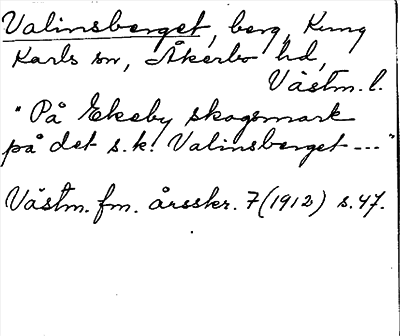 Valinsberget, berg, Kung
Karls sn, Åkerbo hd,
Västm. l.
"På Ekeby skogsmark
på det s.k. Valinsberget ---"
Västm. fm. årsskr. 7 (1912) s. 47.